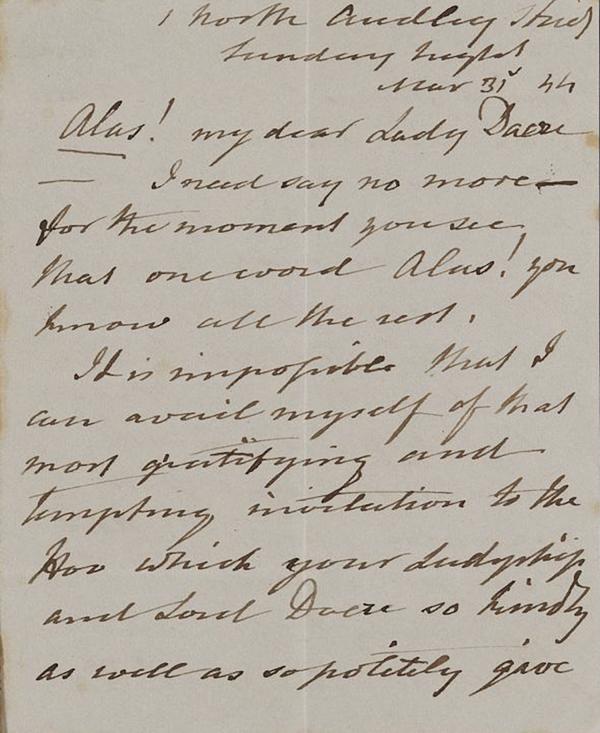 1 North Audley Street
Sunday night
Mar 31st 44
Alas! my dear Lady Dacre
— I need say no more —
for the moment you see
that one word Alas! you
know all the rest.
It is impossible that I
can avail myself of that
most gratifying and
tempting invitation to the
Hoo which your Ladyship
and Lord Dacre so kindly
as well as so politely gave